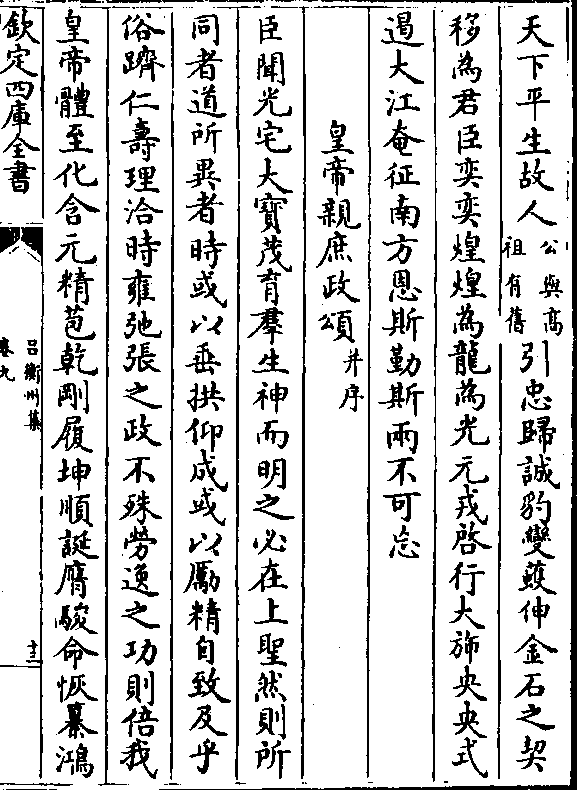 天下平生故人公與高祖有舊引忠歸誠豹變蠖伸金石之契
移為君臣奕奕煌煌為龍為光元戎啓行大斾央央式
遏大江奄征南方恩斯勤斯兩不可忘
皇帝親庶政頌并序
臣聞光宅大寶茂育羣生神而明之必在上聖然則所
同者道所異者時或以垂拱仰成或以勵精自致及乎
俗躋仁壽理洽時雍弛張之政不殊勞逸之功則倍我
皇帝體至化含元精苞乾剛履坤順誕膺駿命恢纂鴻
欽定四庫全書
吕衡州集
卷九
十三